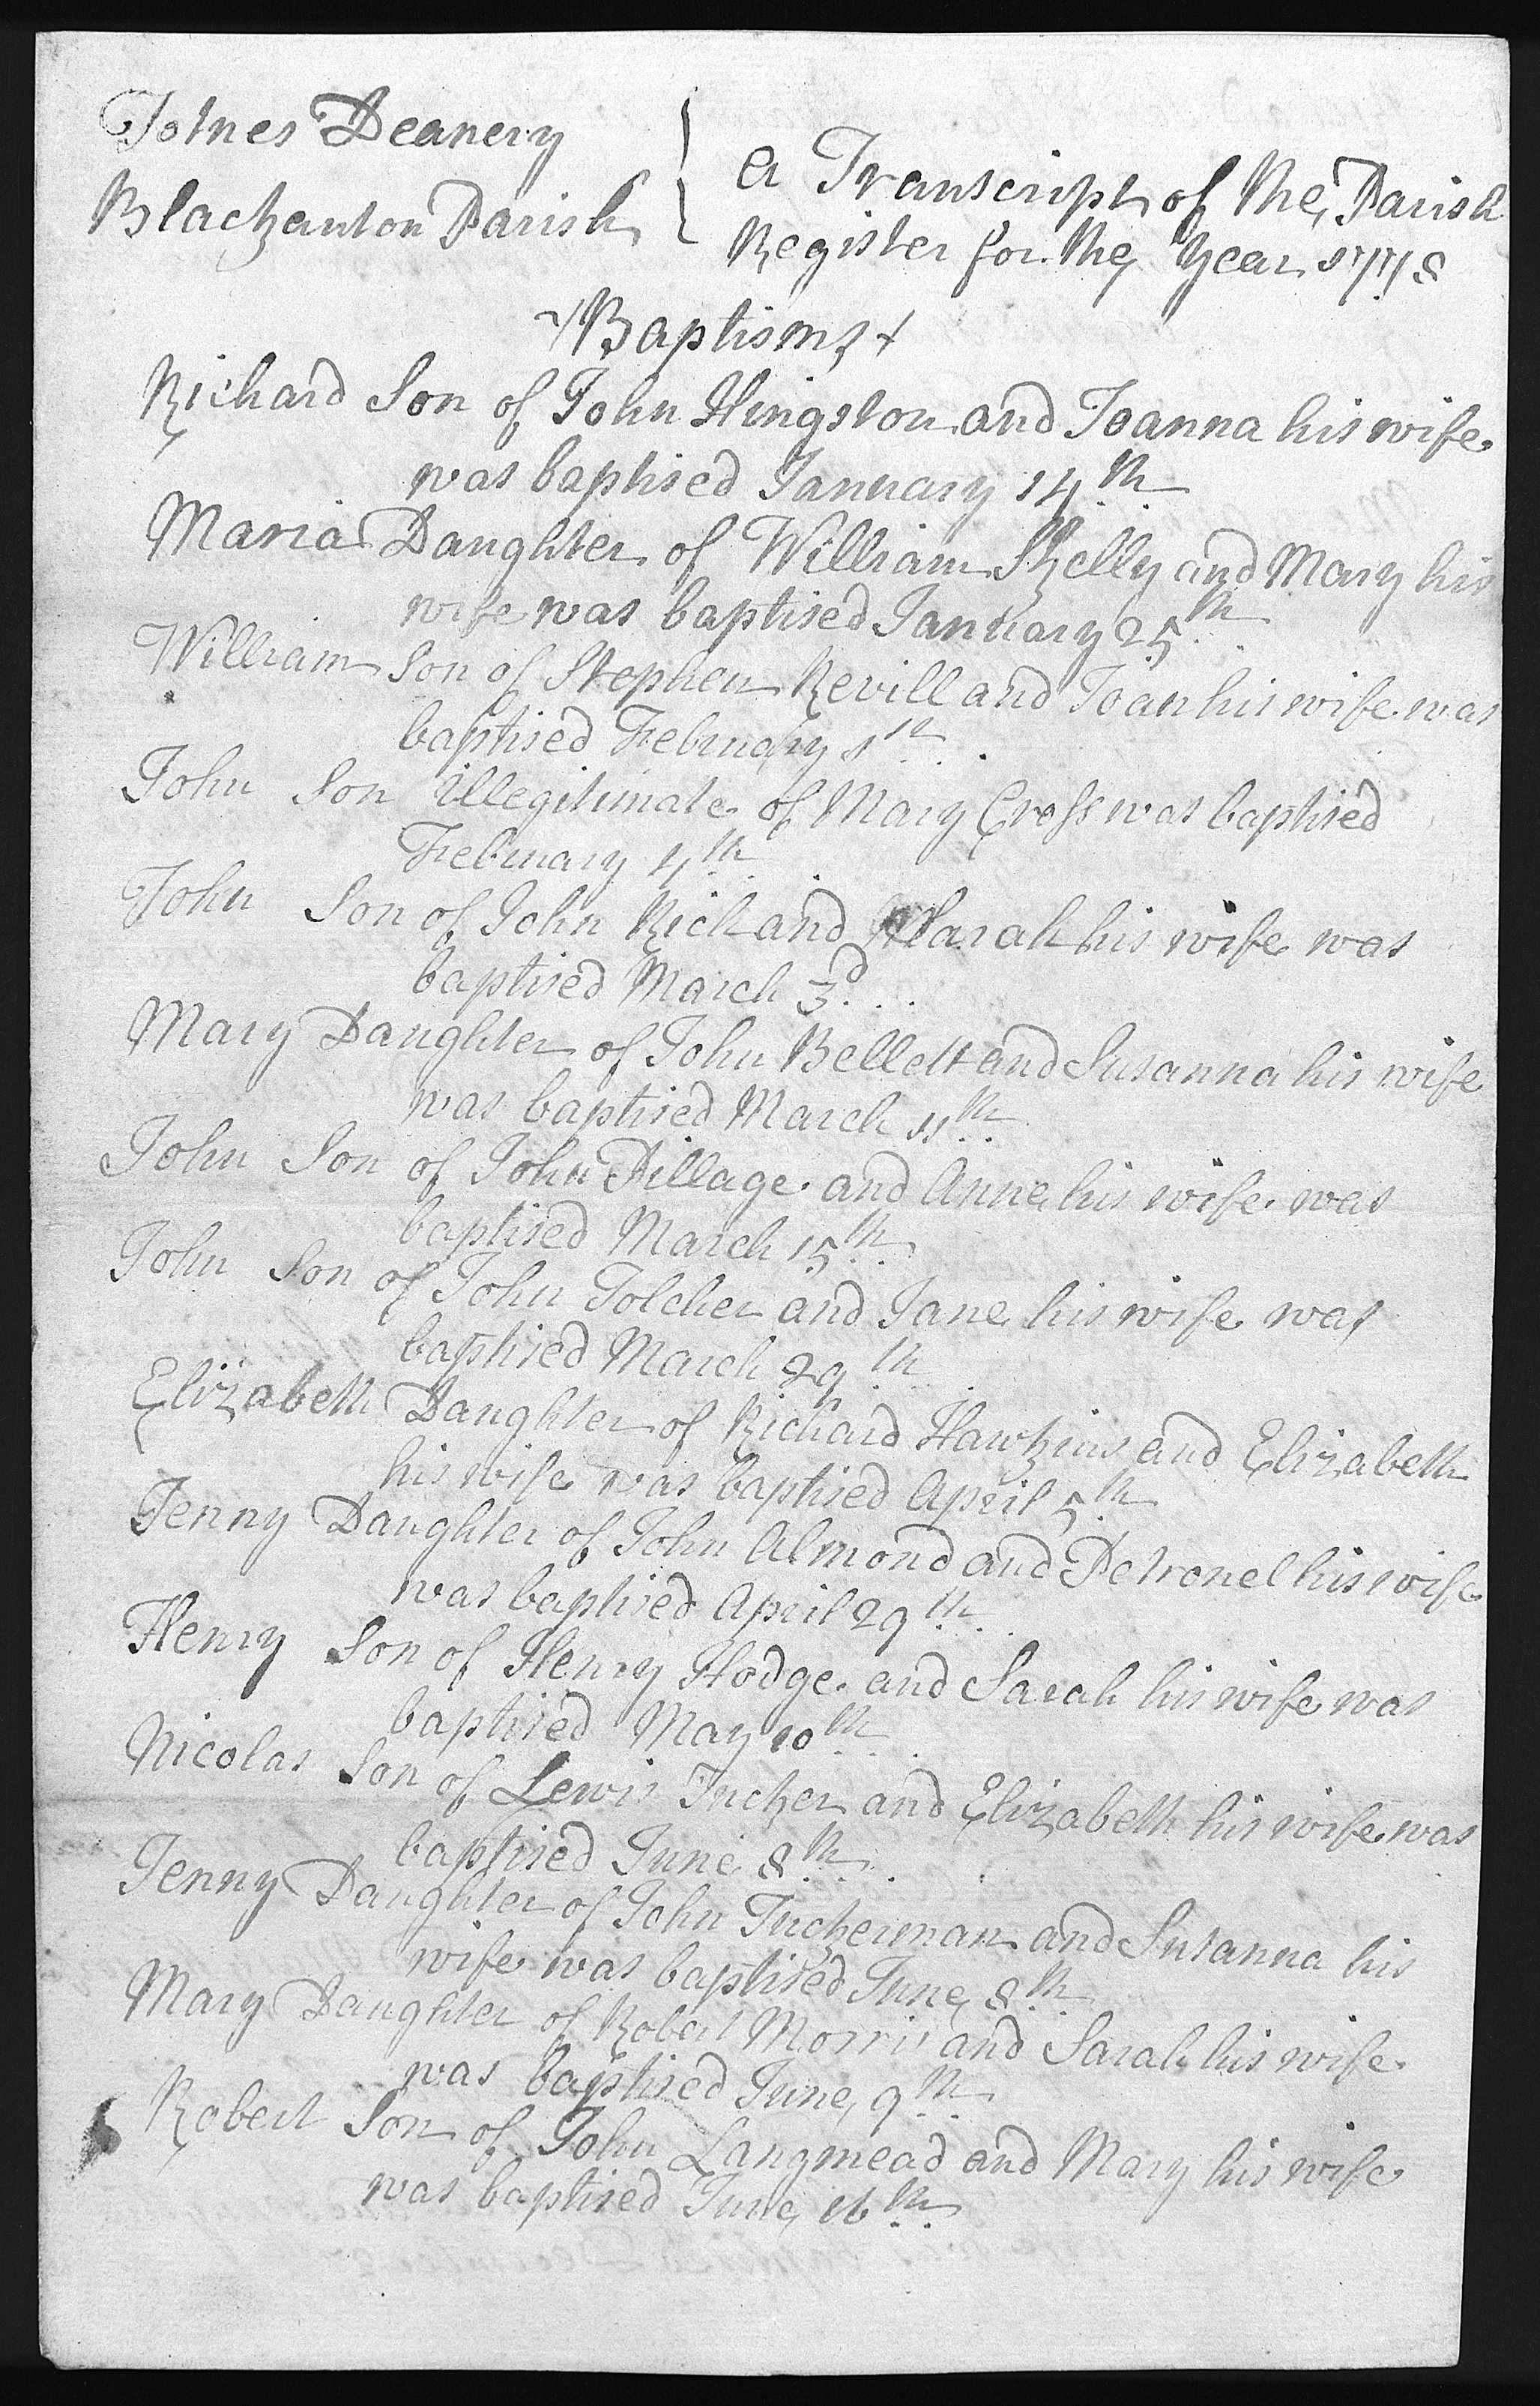 Totnes Deanery
Blackauton Parish
A Transcript of the Parish
Register for the Year 1778
Baptisms
Richard Son of John Hingston and Joanna his wife
was baptised January 14th
Maria Daughter of William Skelly and Mary his
wife was baptised January 25th
William Son of Stephen Revill and Joan his wife was
baptised February 1st
John Son illegitimate of Mary Cross was baptised
February 4th
John Son of John Rich and Sarah his wife was
baptised March 3d
Mary Daughter of John Bellett and Susanna his wife
was baptised March 11th
John Son of John Pillage and Anne his wife was
baptised March 15th
John Son of John Tolcher and Jane his wife was
baptised March 29th
Elizabeth Daughter of Richard Hawkins and Elizabeth
his wife was baptised April 5th
Jenny Daughter of John Almond and Petronel his wife
was baptised April 29th
Henry Son of Henry Hodge and Sarah his wife was
baptised May 10th
Nicolas Son of Lewis Tucker and Elizabeth his wife was
baptised June 8th
Jenny Daughter of John Tuckerman and Susanna his
wife was baptised June 8th
Mary Daughter of Robert Morris and Sarah his wife
was baptised June 9th
Robert Son of John Langmead and Mary his wife
was baptised June 16th